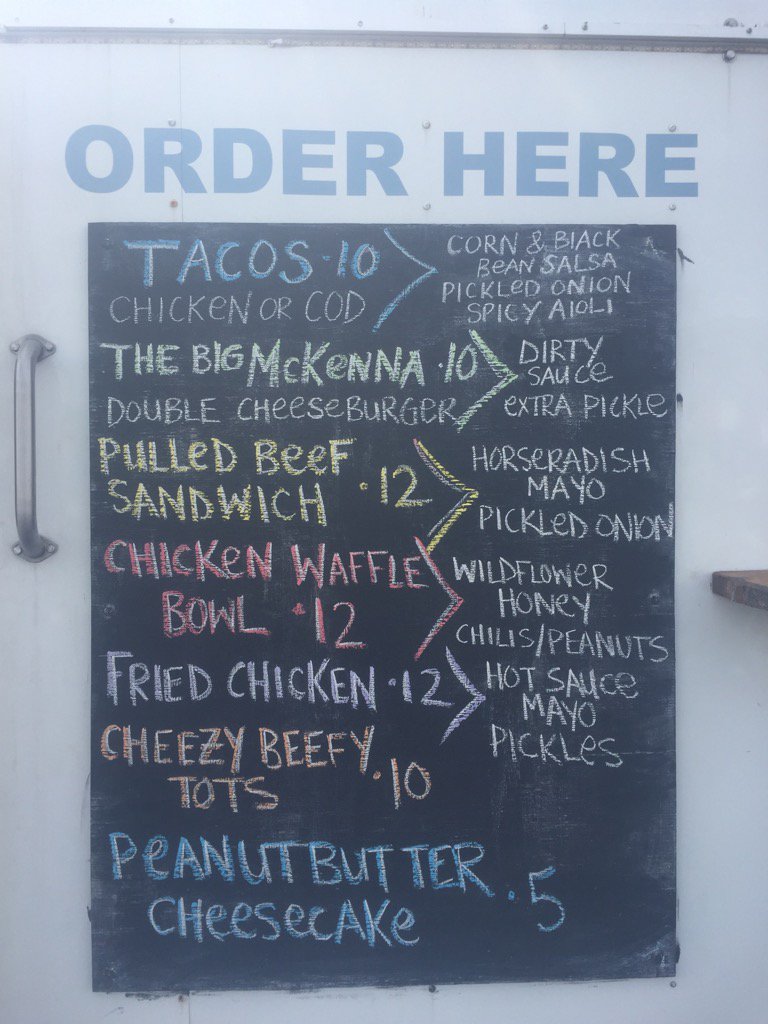 ORDER HERE
TACOS · 10
CHICKEN OR COD
CORN & BLACK
BEAN SALSA
PICKLED ONION
SPICY AIOLI
THE BIG McKENNA · 10
DOUBLE CHEESEBURGER
DIRTY
SAUCE
EXTRA PICKLE
PULLED BEEF
SANDWICH · 12
HORSERADISH
MAYO
PICKLED ONION
CHICKEN WAFFLE
BOWL · 12
WILDFLOWER
HONEY
CHILIS/PEANUTS
FRIED CHICKEN · 12
HOT SAUCE
MAYO
PICKLES
CHEEZY BEEFY
TOTS · 10
PEANUT BUTTER
CHEESECAKE · 5